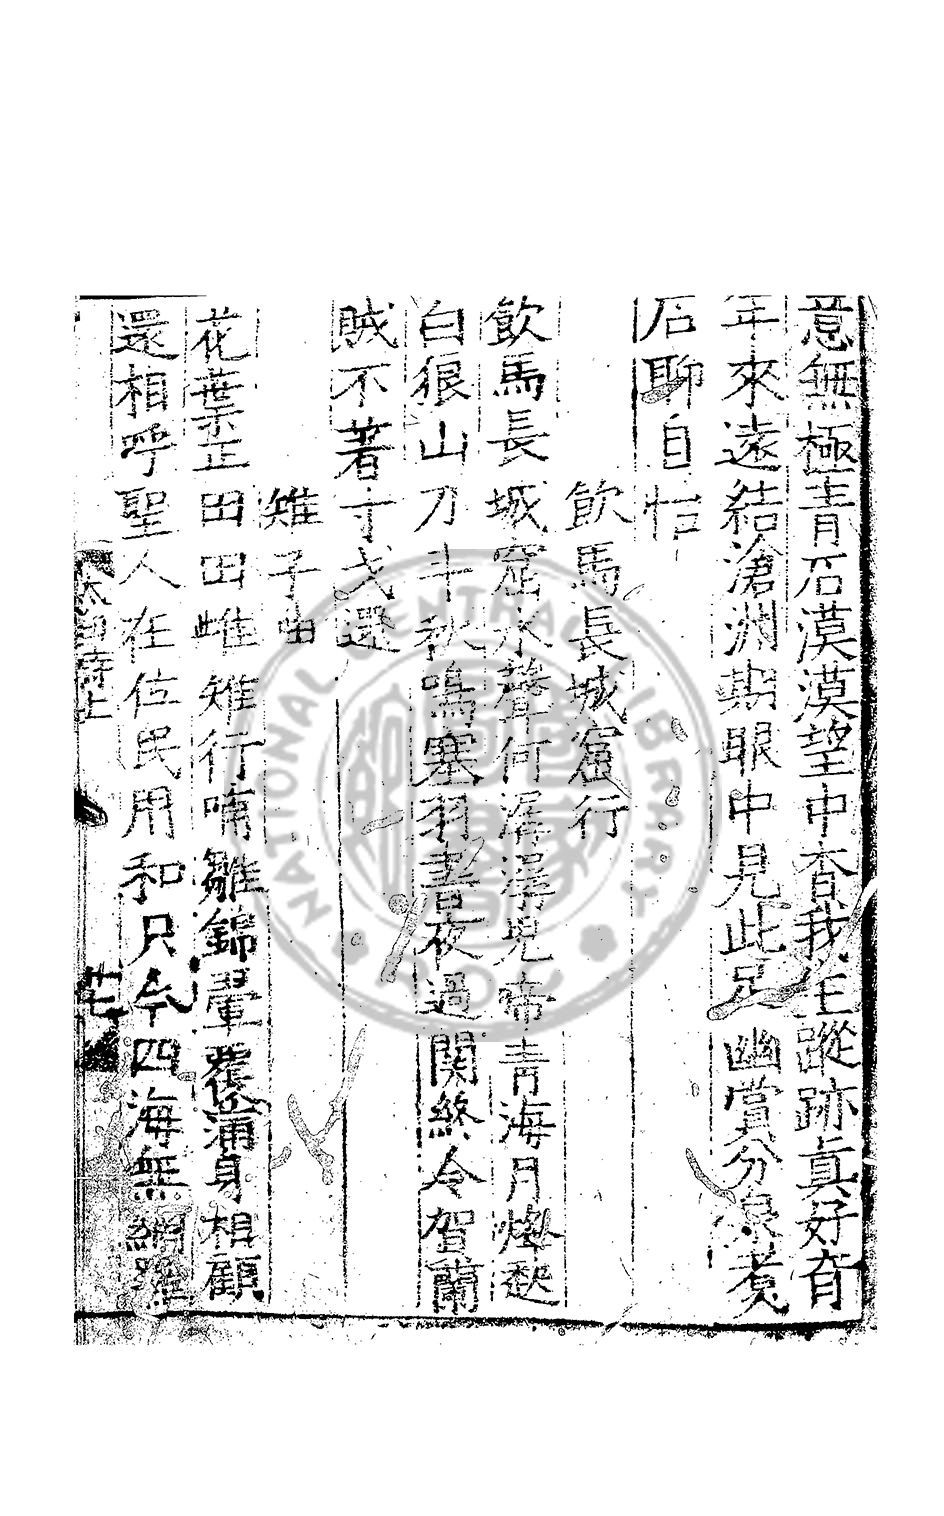 意無極青石漠漠望中杳我生蹤跡真好奇
年來遠結滄洲期眼中見此足幽賞分泉煮
石聊自怡
飲馬長城窟行
飲馬長城窟水聲何潺潺児啼青海月燧
白狼山刀斗秋鳴塞羽書夜過關終令賀蘭
賊不著寸戈還
雉子曲
花葉正田田雌雉行喃雛錦翬褭滿身相顧
還相呼聖人在位民用和只今四海無網羅
太白詩上
廿七
NATIONAL CENTRAL LIBRARY
ROC